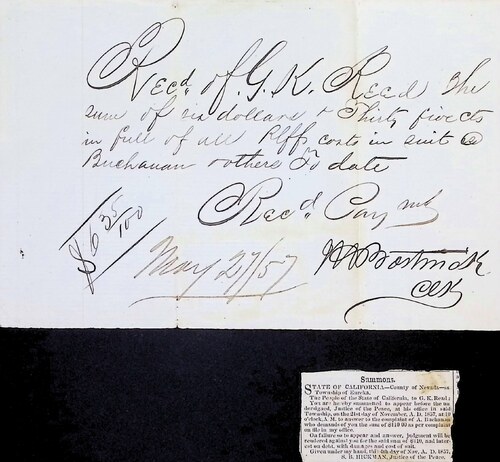 Recd. of. G. K. Reed the
sum of six dollars & Thirty five cts
in full of all Plffs costs in suit @
Buchanan & others To date
Recd. Paymt
$6 35/100
May 27/57
Bostwick
Clk
Summons.
STATE OF CALIFORNIA—County of Nevada—ss
Township of Eureka.
The People of the State of California, to G. K. Reed:
You are hereby summoned to appear before the un-
dersigned, Justice of the Peace, at his office in said
Township, on the 21st day of November, A. D. 1857, at 10
o'clock, A. M. to answer to the complaint of A. Buchanan
who demands of you the sum of $119 00 as per complaint
on file in my office.
On failure so to appear and answer, judgment will be
rendered against you for the said sum of $119, and inter-
est on debt, with damages and cost of suit.
Given under my hand, this 6th day of Nov. A. D. 1857.
S. B. HICKMAN, Justice of the Peace.